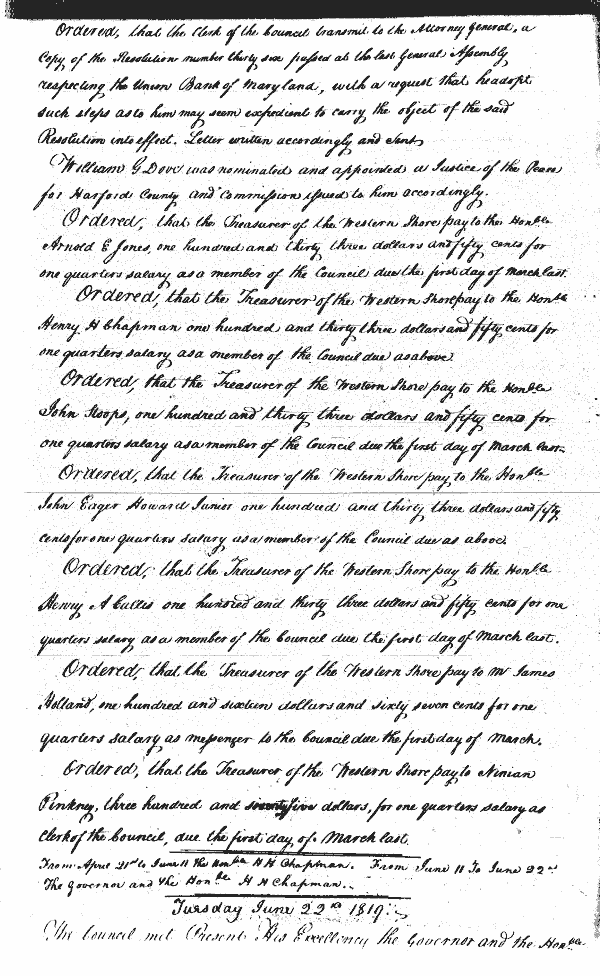 Ordered, that the Clerk of the Council transmit to the Attorney General, a
Copy of the Resolution number thirty six passed at the last General Assembly
respecting the Union Bank of Maryland, with a request that he adopt
such steps as to him may seem expedient to carry the object of the said
Resolution into effect. Letter written accordingly and sent
William G Dove was nominated and appointed a Justice of the Peace
for Harford County and Commission issued to him accordingly.
Ordered, that the Treasurer of the Western Shore pay to the Honble
Arnold E Jones, one hundred and thirty three dollars and fifty cents for
one quarters salary as a member of the Council due the first day of March last.
Ordered, that the Treasurer of the Western Shore pay to the Honble
Henry H Chapman one hundred and thirty three dollars and fifty cents for
one quarters salary as a member of the Council due as above.
Ordered, that the Treasurer of the Western Shore pay to the Honble
John Stoops, one hundred and thirty three dollars and fifty cents for
one quarters salary as a member of the Council due the first day of March last.
Ordered, that the Treasurer of the Western Shore pay to the Honble
John Eager Howard Junior one hundred and thirty three dollars and fifty
cents for one quarters salary as a member of the Council due as above.
Ordered, that the Treasurer of the Western Shore pay to the Honble
Henry A Callis one hundred and thirty three dollars and fifty cents for one
quarters salary as a member of the Council due the first day of March last.
Ordered, that the Treasurer of the Western Shore pay to Mr James
Holland, one hundred and sixteen dollars and sixty seven cents for one
quarters salary as messenger to the Council due the first day of March.
Ordered, that the Treasurer of the Western Shore pay to Ninian
Pinkney, three hundred and seventy five dollars, for one quarters salary as
Clerk of the Council, due the first day of March last
From April 21st to June 11 the Honble H H Chapman. From June 11 To June 22nd
The Governor and the Honble H H Chapman.
Tuesday June 22nd 1819
The Council met Present His Excellency the Governor and the Honble